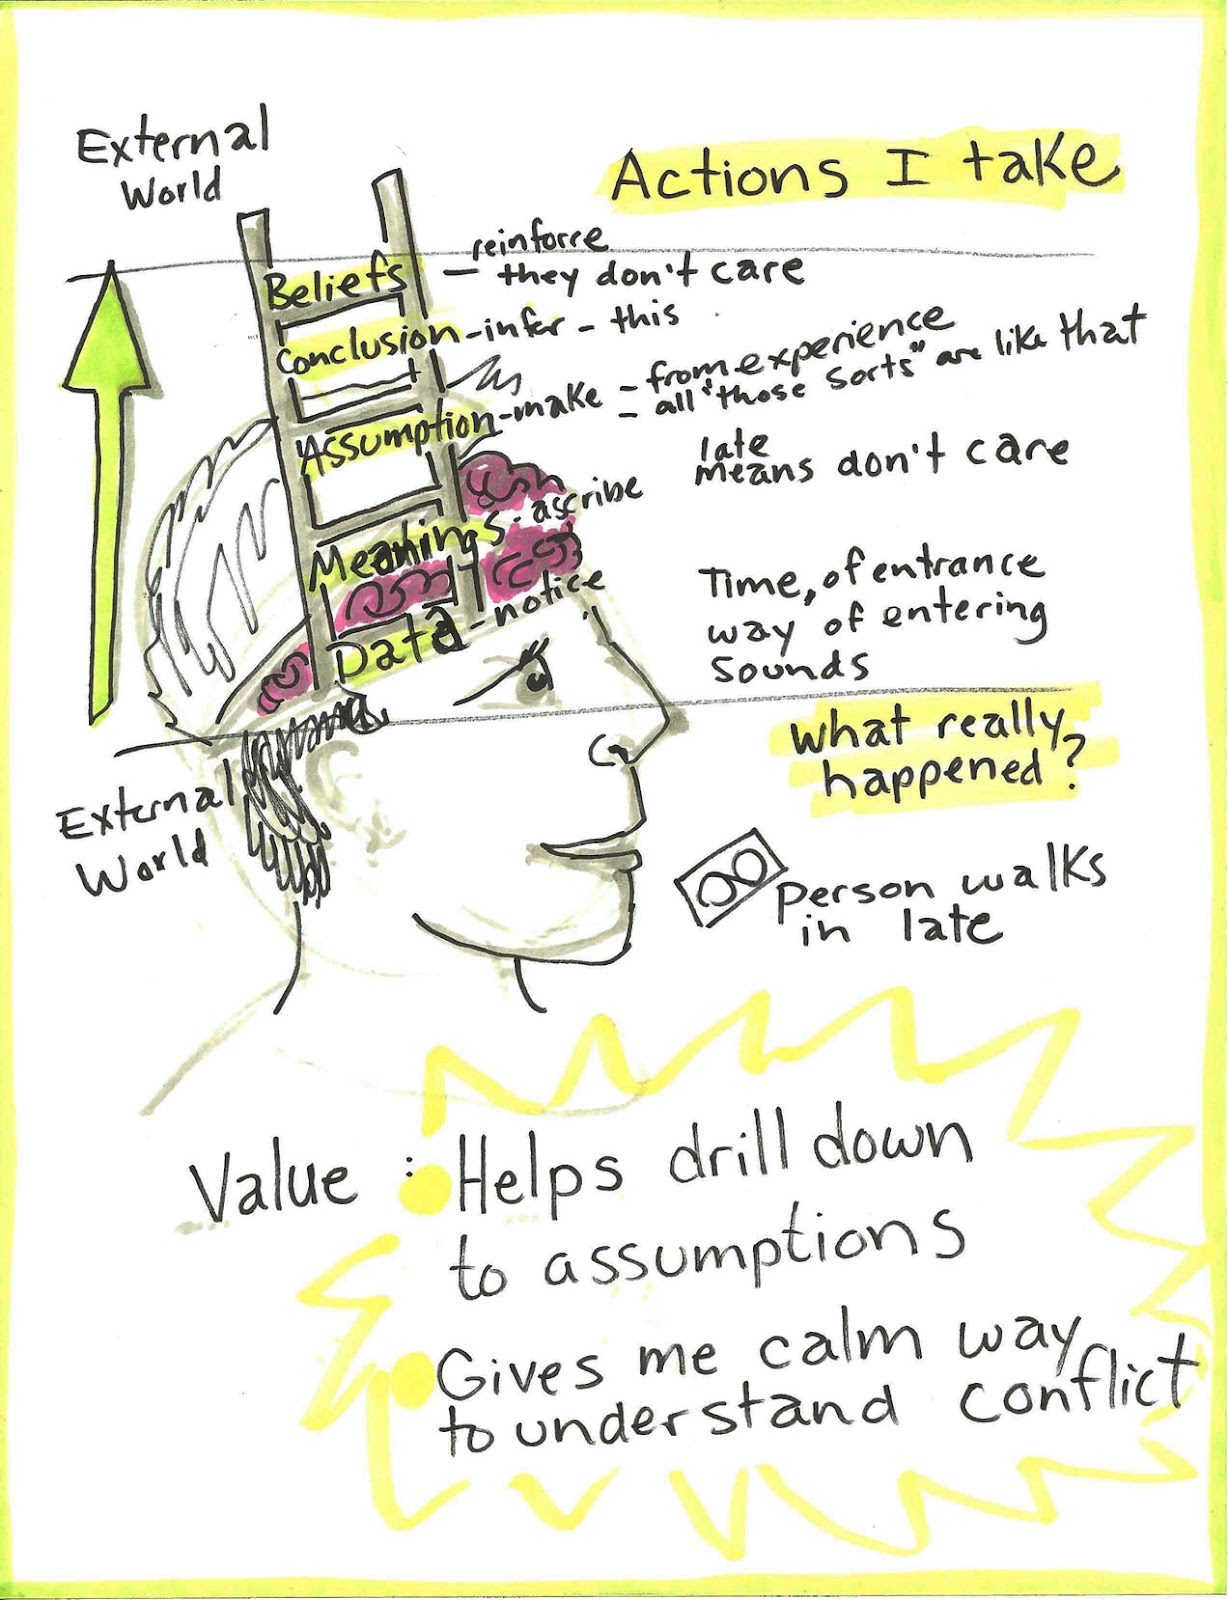 External
World
Actions I take
Beliefs - reinforce
- they don't care
Conclusion - infer - this
Assumption - make - from experience
- all "those sorts" are like that
late
means don't care
Meanings - ascribe
Data - notice
Time, of entrance
way of entering
Sounds
What really
happened?
External
World
person walks
in late
Value : Helps drill down
to assumptions
Gives me calm way
to understand conflict